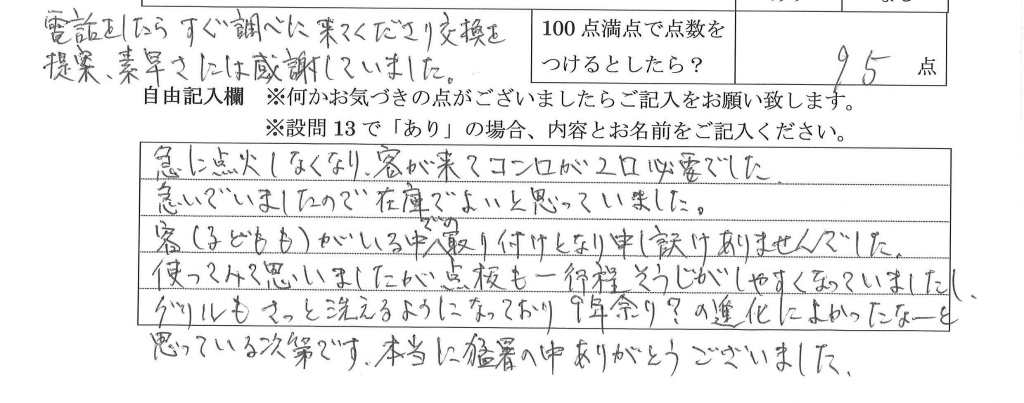 電話をしたらすぐ調べに来てくださり交換を
提案、素早さには感謝していました。
100点満点で点数を
つけるとしたら？
95 点
自由記入欄 ※何かお気づきの点がございましたらご記入をお願い致します。
※設問13で「あり」の場合、内容とお名前をご記入ください。
急に点火しなくなり、客が来てコンロが2口必要でした。
急いでいましたので在庫でよいと思っていました。
客(子どもも)がいる中での取り付けとなり申し訳けありませんでした。
使ってみて思いましたが点板も一行程そうじがしやすくなっていましたし、
グリルもさっと洗えるようになっており9年余り?の進化によかったなーと
思っている次第です。本当に猛暑の中ありがとうございました。